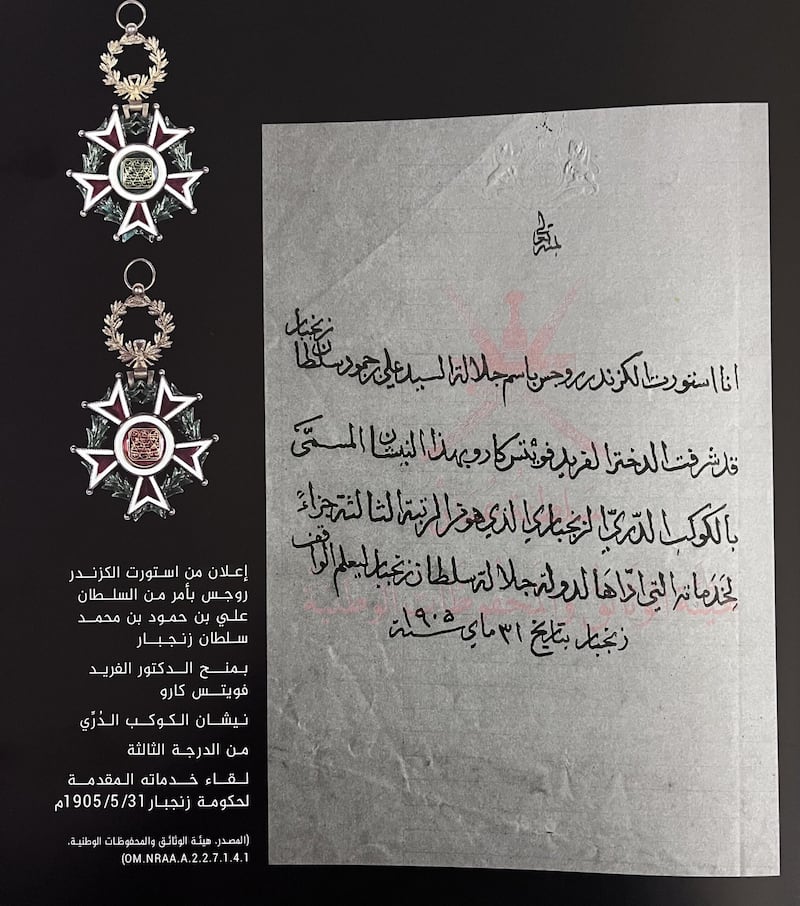 بمنه تعالى
زنجبار
انا استورت الكزندر روجس باسم جلالة السيد علي بن حمود سلطان
قد شرفت الدختر الفريد فويتس كارو بهذا النيشان المسمّى
بالكوكب الدّريّ الزنجباري الذي هو من المرتبة الثالثة جزاءً
لخدماته التي ادّاها لدولة جلالة سلطان زنجبار ليعلم الواقف
زنجبار بتاريخ ٣١ ماي سنة ١٩٠٥
إعلان من استورت الكزندر
روجس بأمر من السلطان
علي بن حمود بن محمد
سلطان زنجبار
بمنح الدكتور الفريد
فويتس كارو
نيشان الكوكب الدُرِّي
من الدرجة الثالثة
لقاء خدماته المقدمة
لحكومة زنجبار 1905/5/31م
(المصدر. هيئة الوثائق والمحفوظات الوطنية.
OM.NRAA.A.2.2.7.1.4.1)